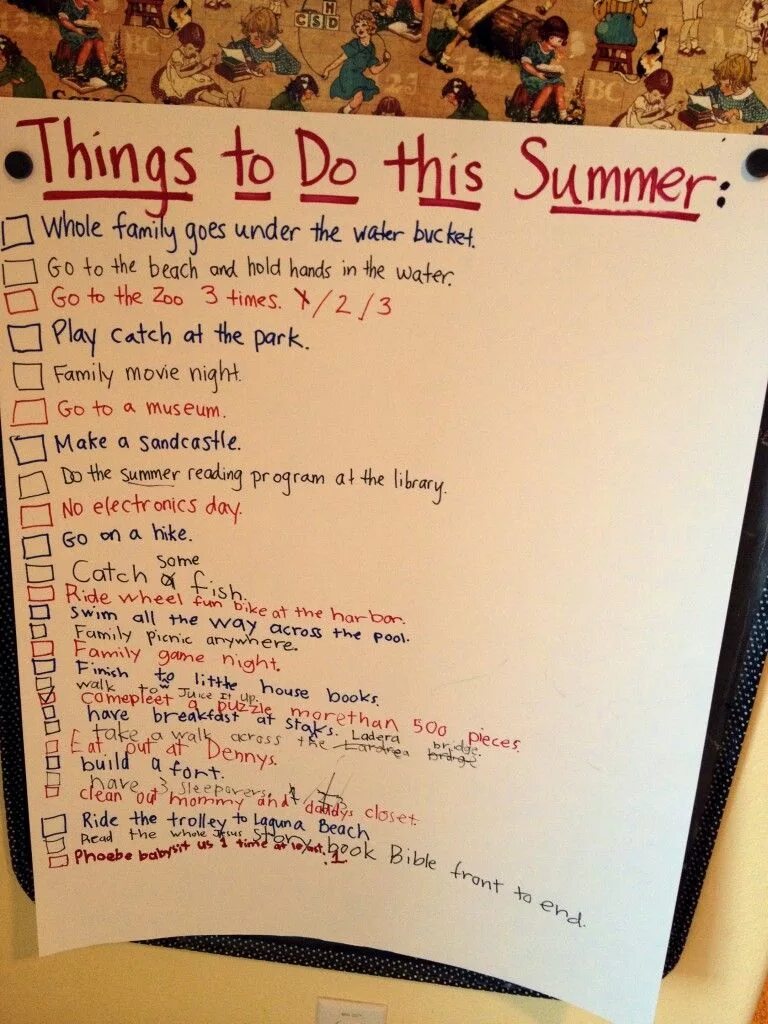 Things to Do this Summer:
Whole family goes under the water bucket.
Go to the beach and hold hands in the water.
Go to the Zoo 3 times. 1/2/3
Play catch at the park.
Family movie night.
Go to a museum.
Make a sandcastle.
Do the summer reading program at the library.
No electronics day.
Go on a hike.
Catch some fish.
Ride wheel fun bike at the harbor.
Swim all the way across the pool.
Family picnic anywhere.
Family game night.
Finish to little house books.
walk to Juice It Up.
compleet a puzzle morethan 500 pieces.
have breakfast at staks.
take a walk across the Ladera bridge.
Eat out at Dennys.
build a fort.
have 3 sleepovers.
clean out mommy and daddys closet.
Ride the trolley to Laguna Beach
Read the whole Jesus Story book Bible front to end.
Phoebe babysit us 1 time at least. 1